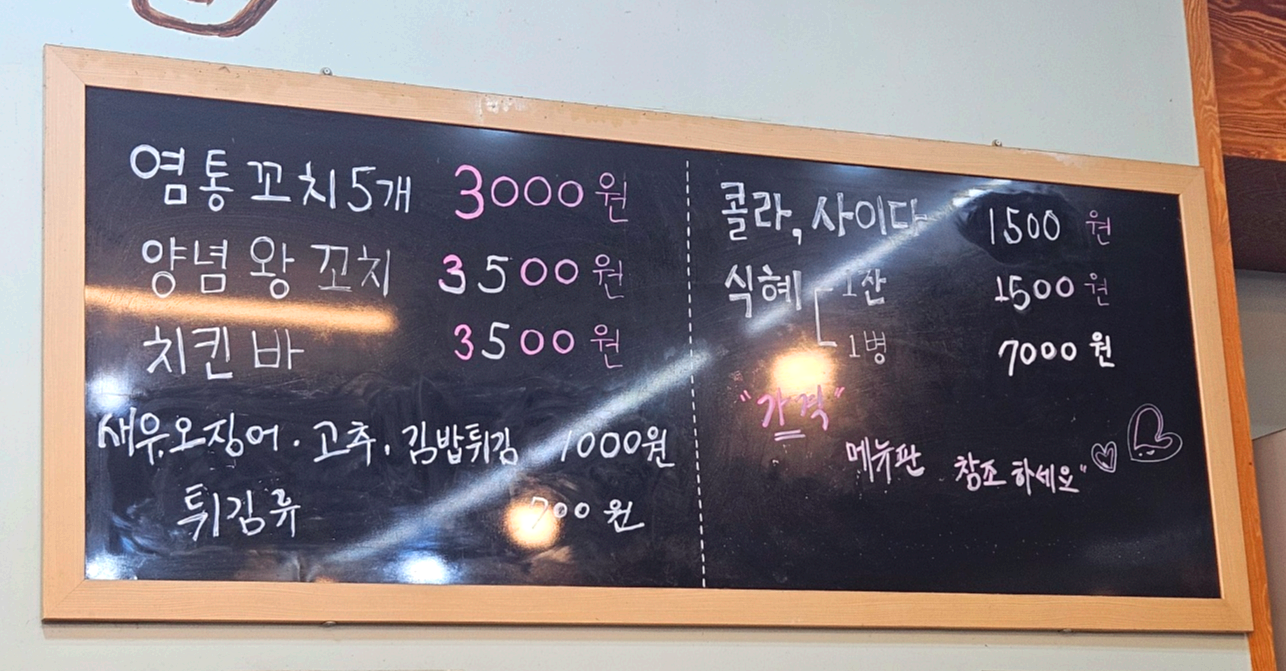 염통꼬치5개 3000원
양념 왕 꼬치 3500원
치킨 바 3500원
새우.오징어.고추.김밥튀김 1000원
튀김류 700원
콜라, 사이다 1500원
식혜 1잔 1500원
1병 7000원
"가격"
메뉴판 참조하세요"